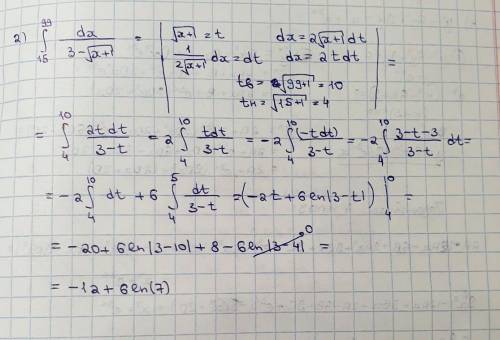 2) ∫₁₅⁹⁹ dx/(3-√(x+1)) = | √(x+1) = t dx = 2√(x+1) dt
1/(2√(x+1)) dx = dt dx = 2t dt
tв = √(99+1) = 10
tн = √(15+1) = 4 | =
= ∫₄¹⁰ 2t dt/(3-t) = 2 ∫₄¹⁰ tdt/(3-t) = -2 ∫₄¹⁰ (-t dt)/(3-t) = -2 ∫₄¹⁰ (3-t-3)/(3-t) dt =
= -2 ∫₄¹⁰ dt + 6 ∫₄⁵ dt/(3-t) = (-2t + 6ln|3-t|) |₄¹⁰ =
= -20 + 6ln|3-10| + 8 - 6ln|3-4| 0 =
= -12 + 6ln(7)